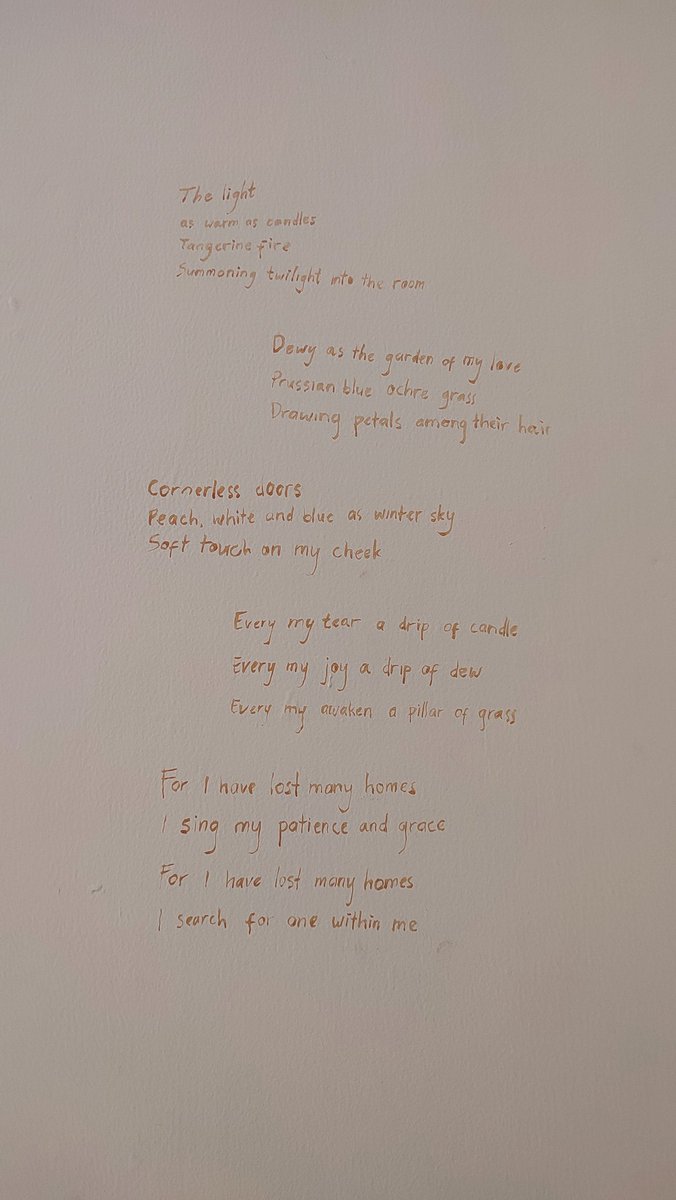 The light
as warm as candles
Tangerine fire
Summoning twilight into the room
Dewy as the garden of my love
Prussian blue ochre grass
Drawing petals among their hair
Cornerless doors
Peach, white and blue as winter sky
Soft touch on my cheek
Every my tear a drip of candle
Every my joy a drip of dew
Every my awaken a pillar of grass
For I have lost many homes
I sing my patience and grace
For I have lost many homes
I search for one within me